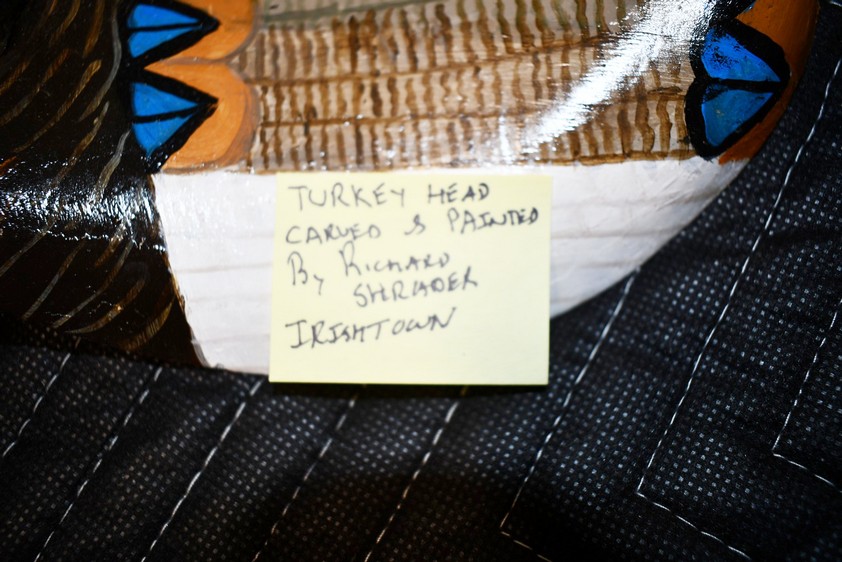 TURKEY HEAD
CARVED & PAINTED
By RICHARD
SHRADER
IRISHTOWN